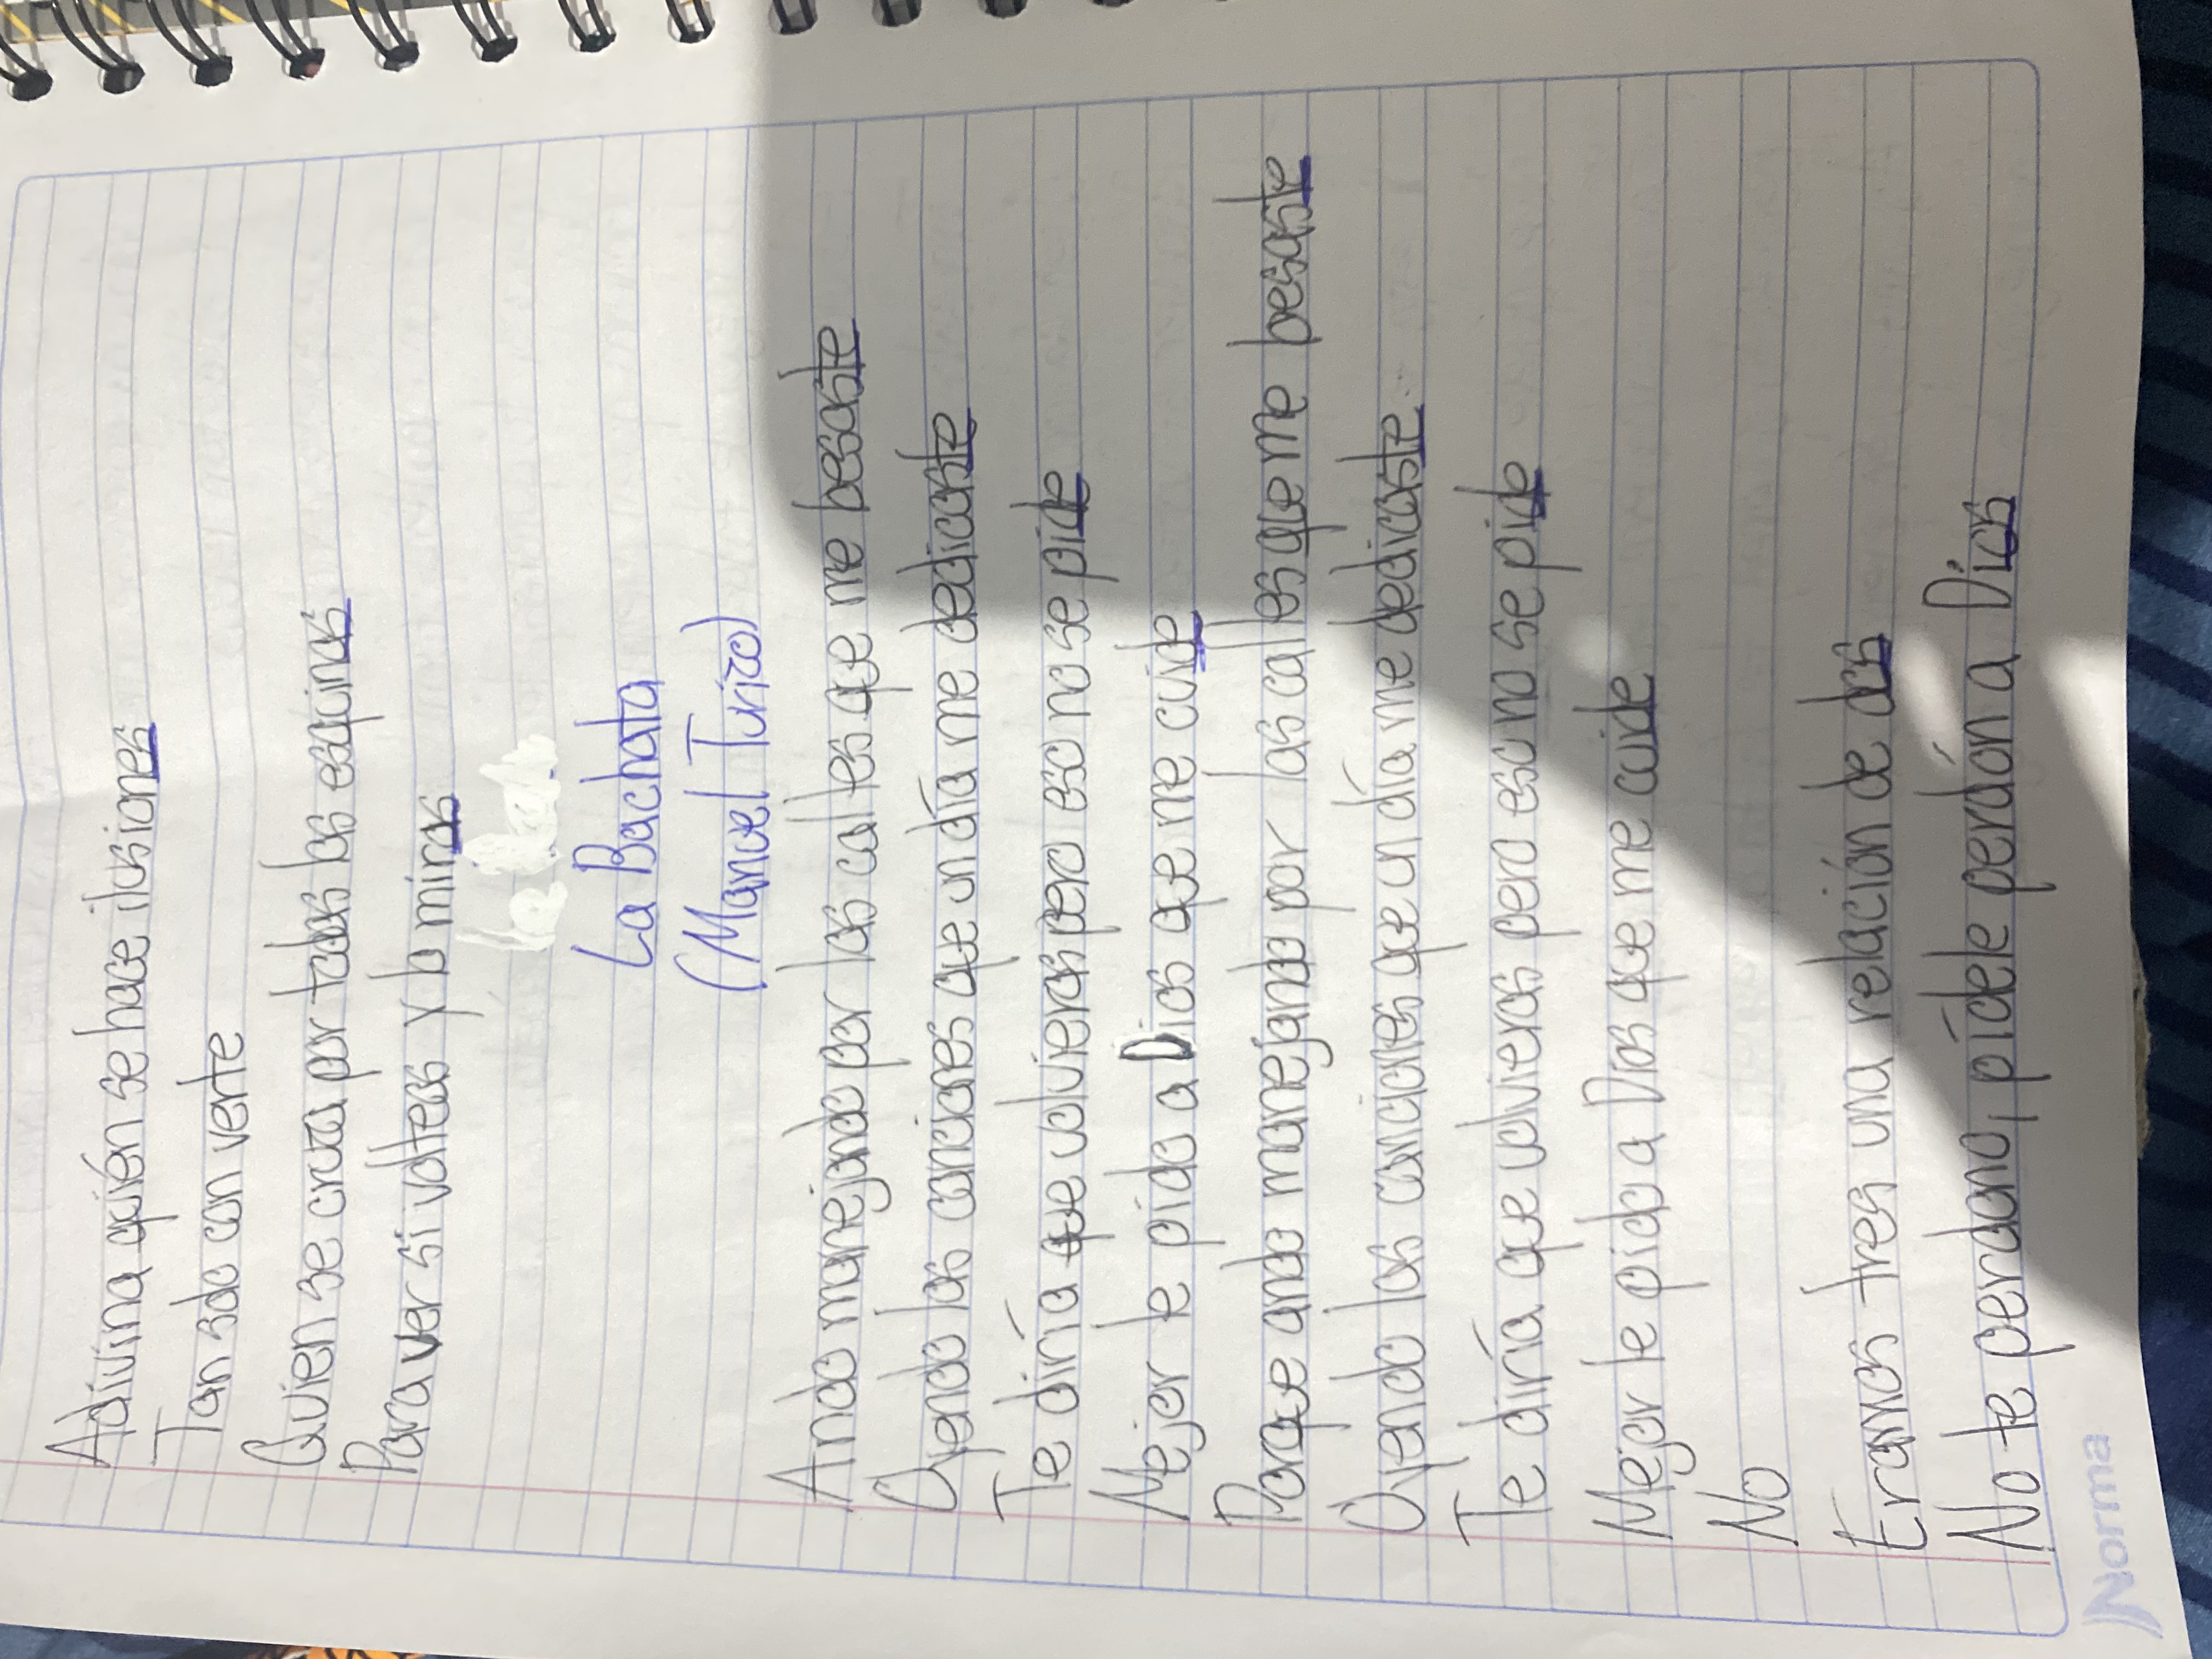 Adivina quién se hace ilusiones
Tan solo con verte
Quien se cruza por todas las esquinas
Para ver si volteas y lo miras
La Bachata
(Manuel Turizo)
Ando manejando por las calles que me besaste
Oyendo las canciones que un día me dedicaste
Te diría que volvieras pero eso no se pide
Mejor le pido a Dios que me cuide
Porque ando manejando por las calles que me besaste
Oyendo las canciones que un día me dedicaste
Te diría que volvieras pero eso no se pide
Mejor le pido a Dios que me cuide
No
Éramos tres una relación de dos
No te perdono, pídele perdón a Dios
Norma